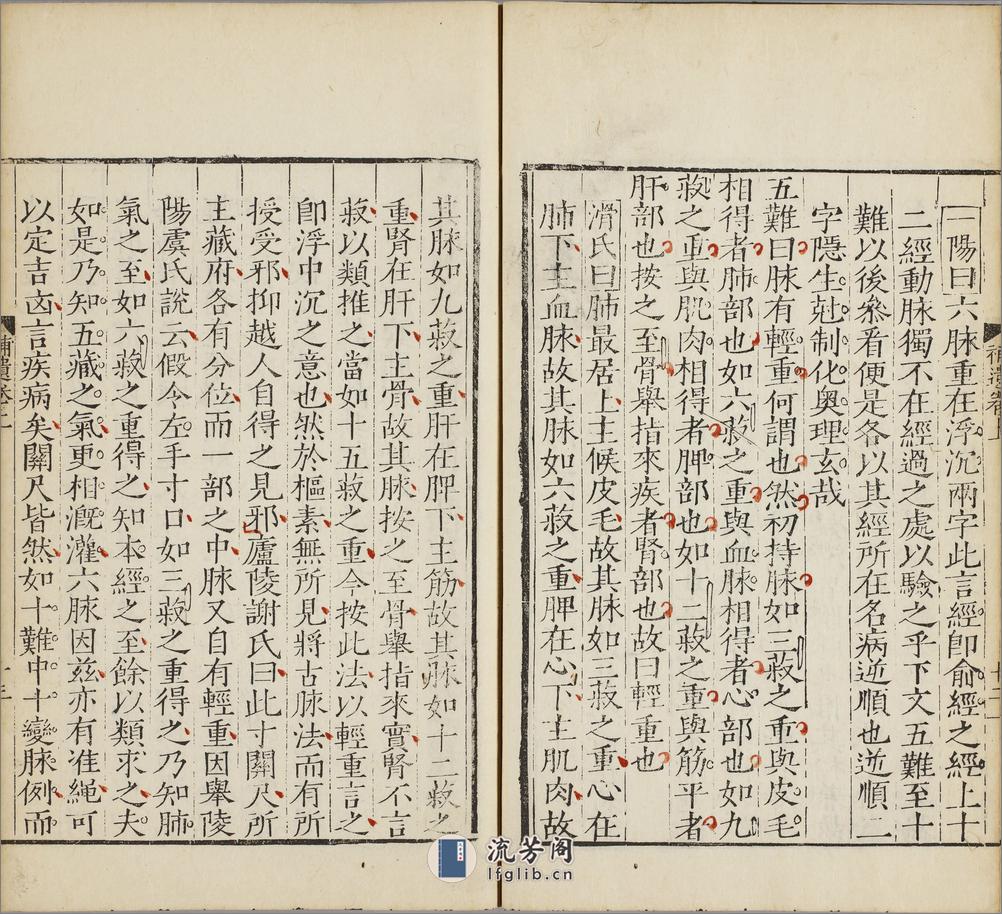 一陽曰六脉重在浮沉兩字此言經卽俞經之經上十
二經動脉獨不在經過之處以驗之乎下文五難至十
難以後叅看便是各以其經所在名病逆順也逆順二
字隱生尅制化奥理玄哉
五難曰脉有輕重何謂也然初持脉如三菽之重與皮毛
相得者肺部也如六菽之重與血脉相得者心部也如九
菽之重與肌肉相得者脾部也如十二菽之重與筋平者
肝部也按之至骨舉指來疾者腎部也故曰輕重也
滑氏曰肺最居上主候皮毛故其脉如三菽之重心在
肺下主血脉故其脉如六菽之重脾在心下主肌肉故
其脉如九菽之重肝在脾下主筋故其脉如十二菽之
重腎在肝下主骨故其脉按之至骨舉指來實腎不言
菽以類推之當如十五菽之重今按此法以輕重言之
卽浮中沉之意也然於樞素無所見將古脉法而有所
授受邪抑越人自得之見邪廬陵謝氏曰此寸關尺所
主藏府各有分位而一部之中脉又自有輕重因舉陵
陽虞氏說云假令左手寸口如三菽之重得之乃知肺
氣之至如六菽之重得之知本經之至餘以類求之夫
如是乃知五藏之氣更相漑灌六脉因兹亦有准繩可
以定吉凶言疾病矣關尺皆然如十難中十變脉例而
補遺卷上
十二
十三
流芳阁
lfglib.cn